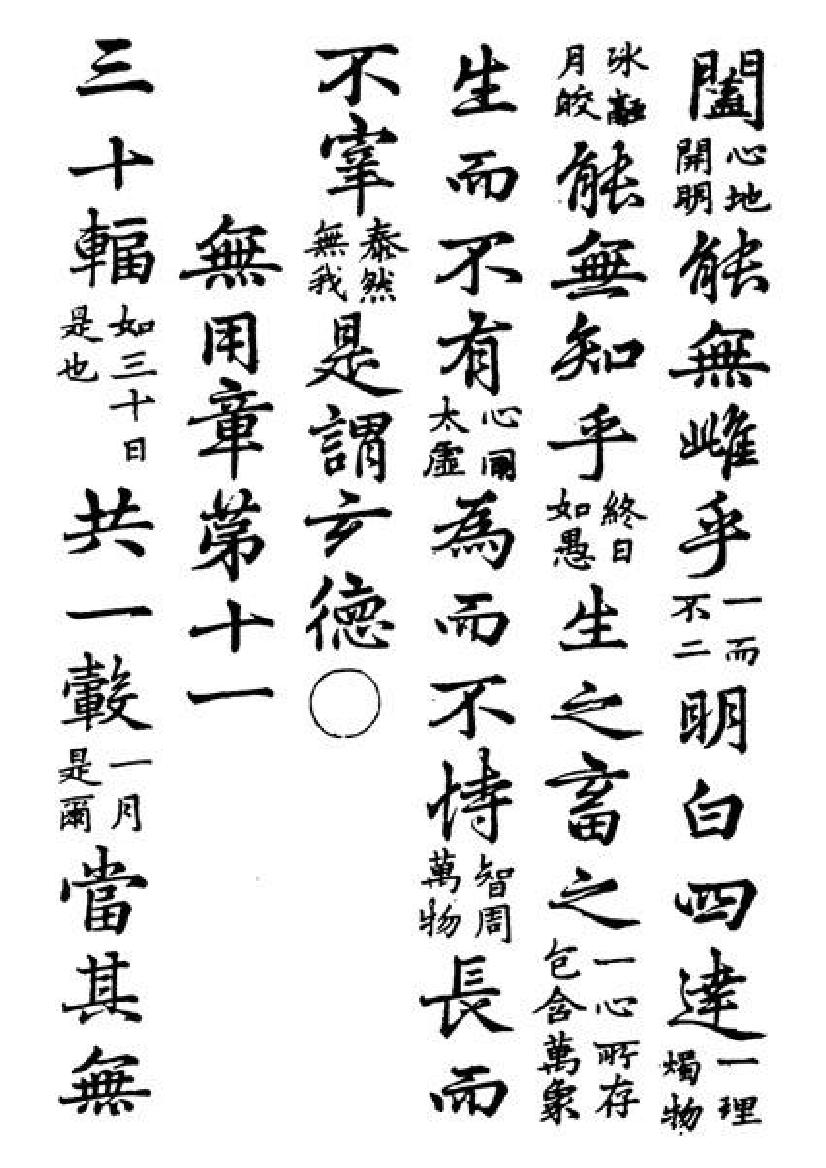 闔心地開明能無雌乎一而不二明白四達一理燭物
氷融月皎能無知乎終日如愚生之畜之一心所存包含萬象
生而不有心同太虛為而不恃智周萬物長而
不宰泰然無我是謂玄德○
無用章第十一
三十輻如三十日是也共一轂一月是爾當其無